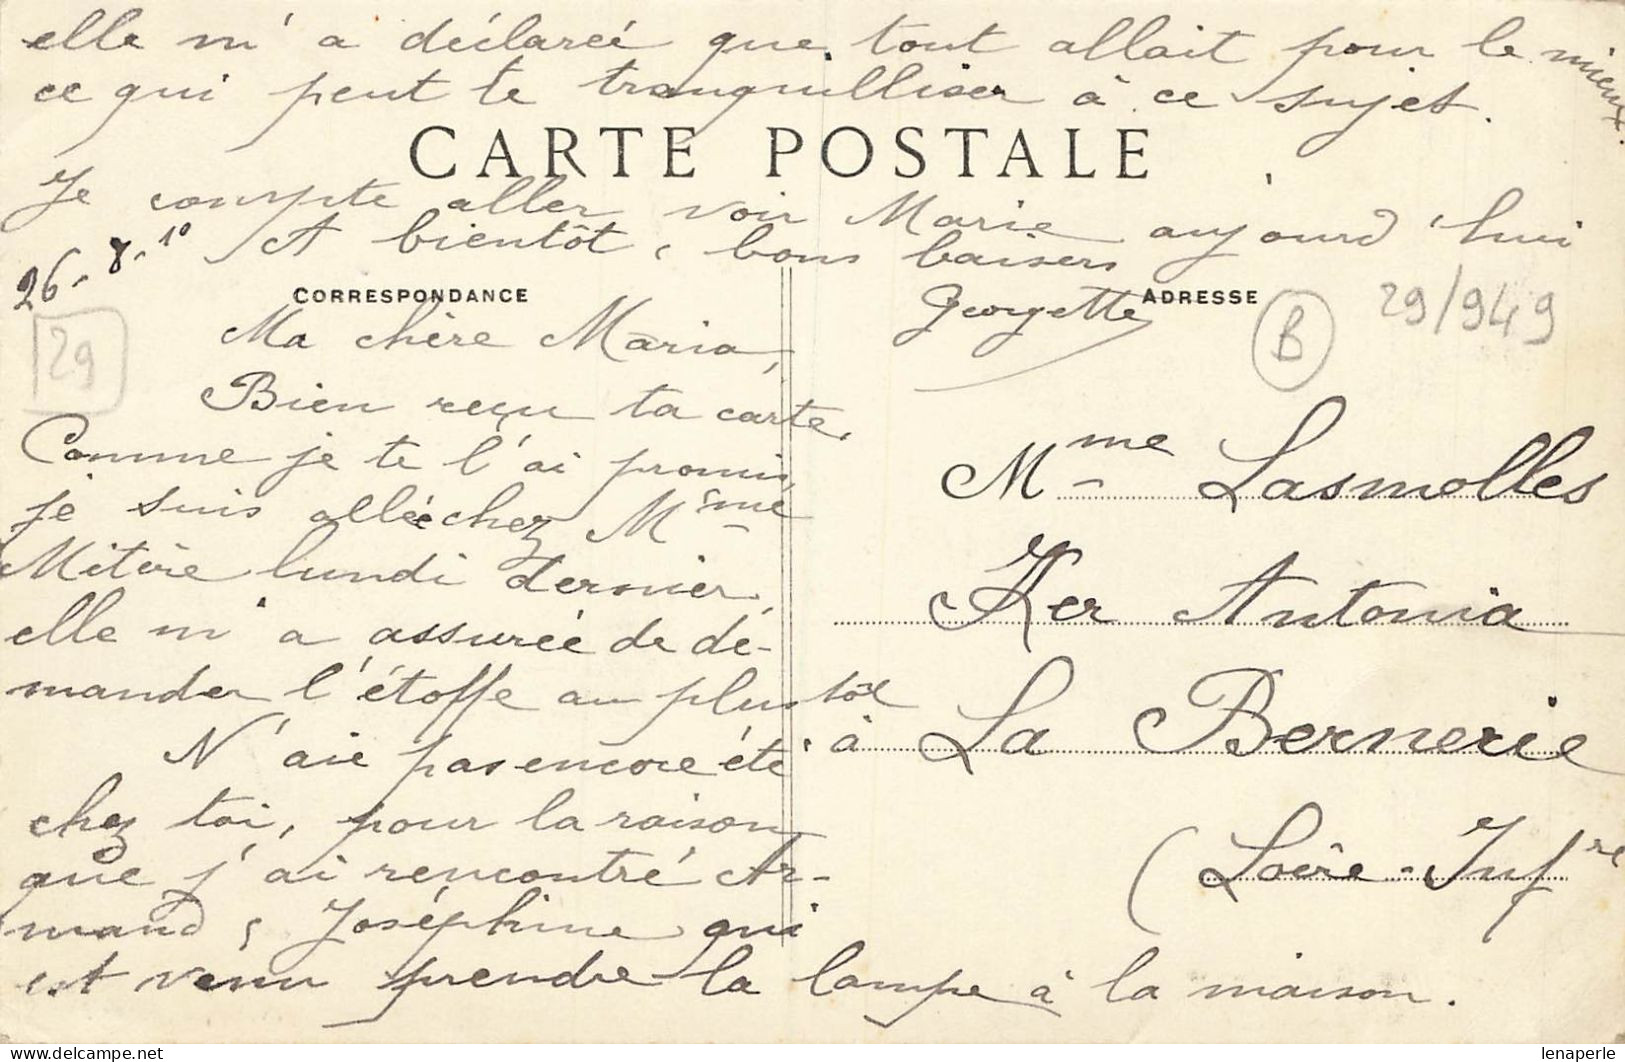 elle m'a déclareé que tout allait pour le mieux.
ce qui peut te tranquilliser à ce sujet.
CARTE POSTALE
Je compte aller voir Marie aujourd'hui
26-8-10 A bientôt, bons baisers
CORRESPONDANCE
Georgette
ADRESSE
B
29/949
29
Ma chère Maria,
Bien reçu ta carte,
Comme je te l'ai promis,
je suis allée chez Mme
Mitère lundi dernier,
elle m'a assurée de de-
mander l'étoffe au plus tôt
N'aie pas encore été
chez toi, pour la raison
que j'ai rencontré Ar-
mand, Joséphine qui
est venu prendre la lampe à la maison.
Mme Lasmolles
Ker Antonia
à La Bernerie
(Loire-Infre
lenaperle